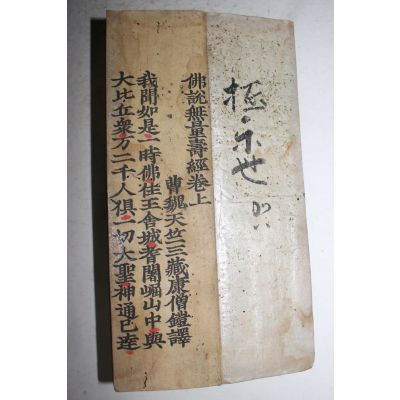 極楽世
佛說無量壽經卷上
曹魏天竺三藏康僧鎧譯
我聞如是一時佛住王舍城耆闍崛山中與
大比丘衆万二千人俱一切大聖神通已達